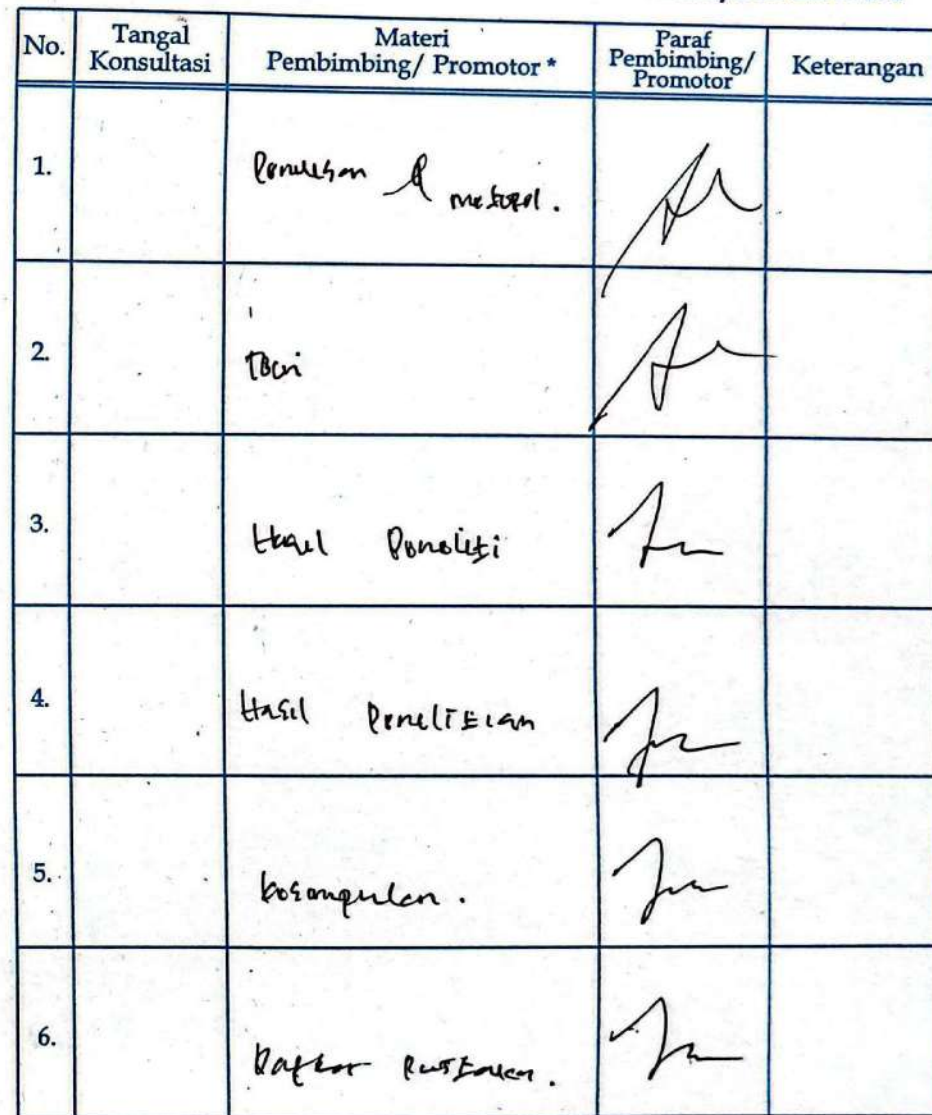 No.
Tangal
Konsultasi
Materi
Pembimbing/ Promotor *
Paraf
Pembimbing/
Promotor
Keterangan
1.
2.
3. Hasil
4. Hasil Penelitian
5. kesimpulan.
6. Daftar Pustaka.